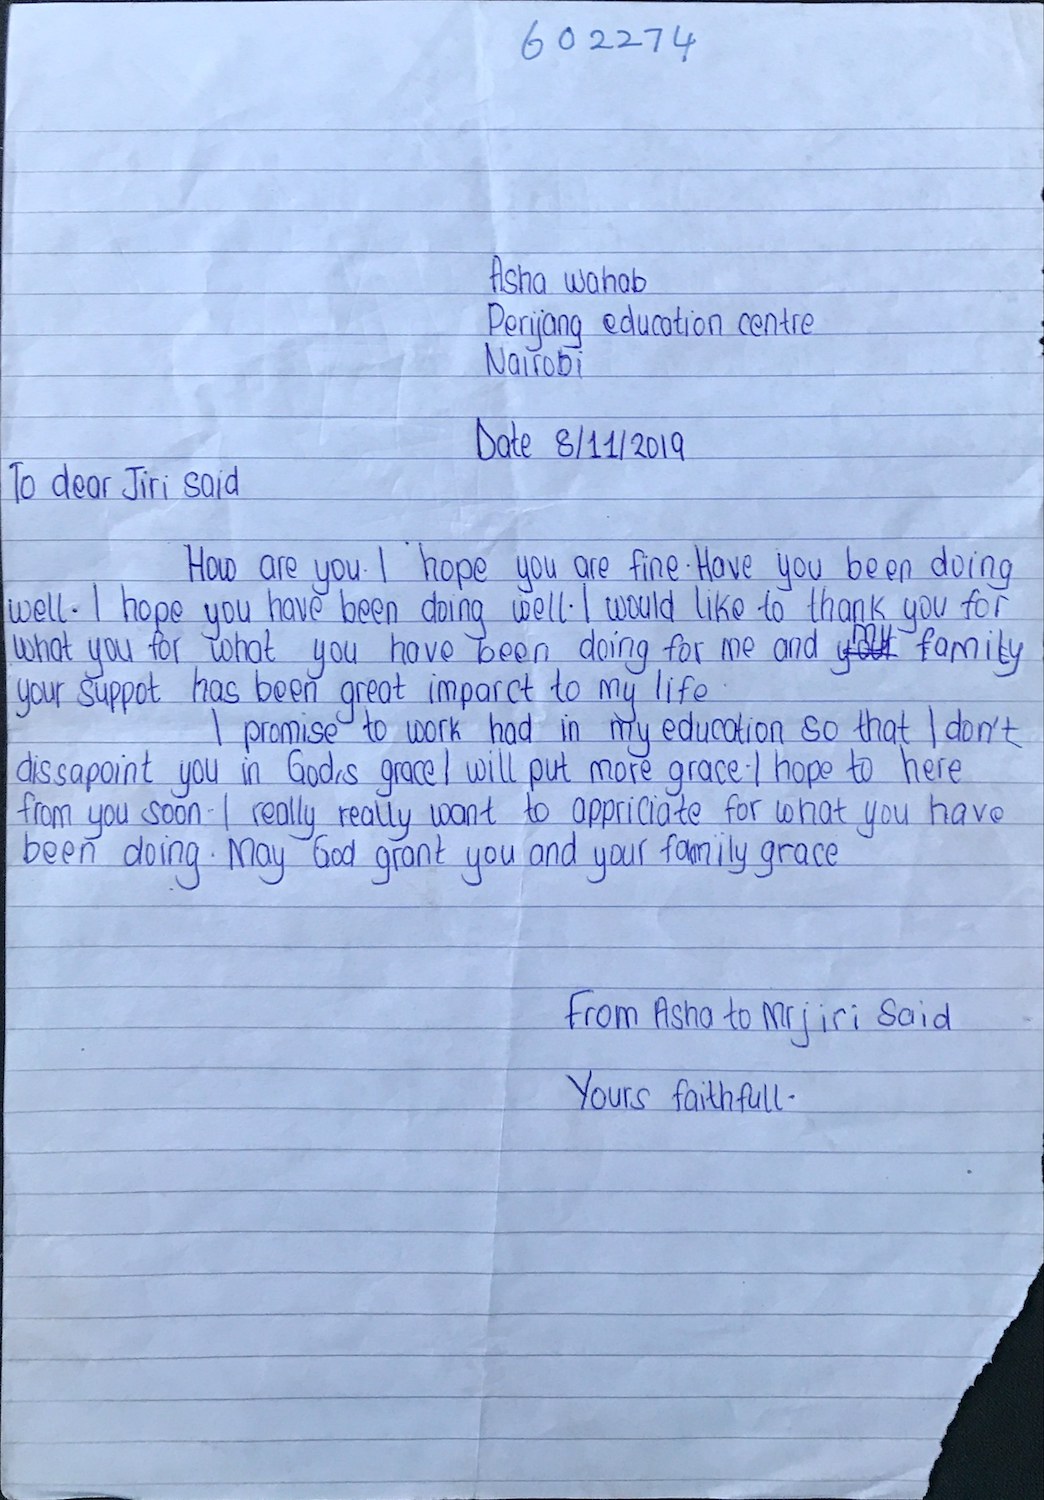 602274
Asha wahab
Perijang education centre
Nairobi
Date 8/11/2019
To dear Jiri said
How are you. I hope you are fine. Have you been doing
well. I hope you have been doing well. I would like to thank you for
what you for what you have been doing for me and my family
your suppot has been great imparct to my life
I promise to work had in my education so that I don't
dissapoint you in God,s grace I will put more grace. I hope to here
from you soon. I really really want to appriciate for what you have
been doing. May God grant you and your family grace
From Asha to Mr jiri Said
Yours faithfull.